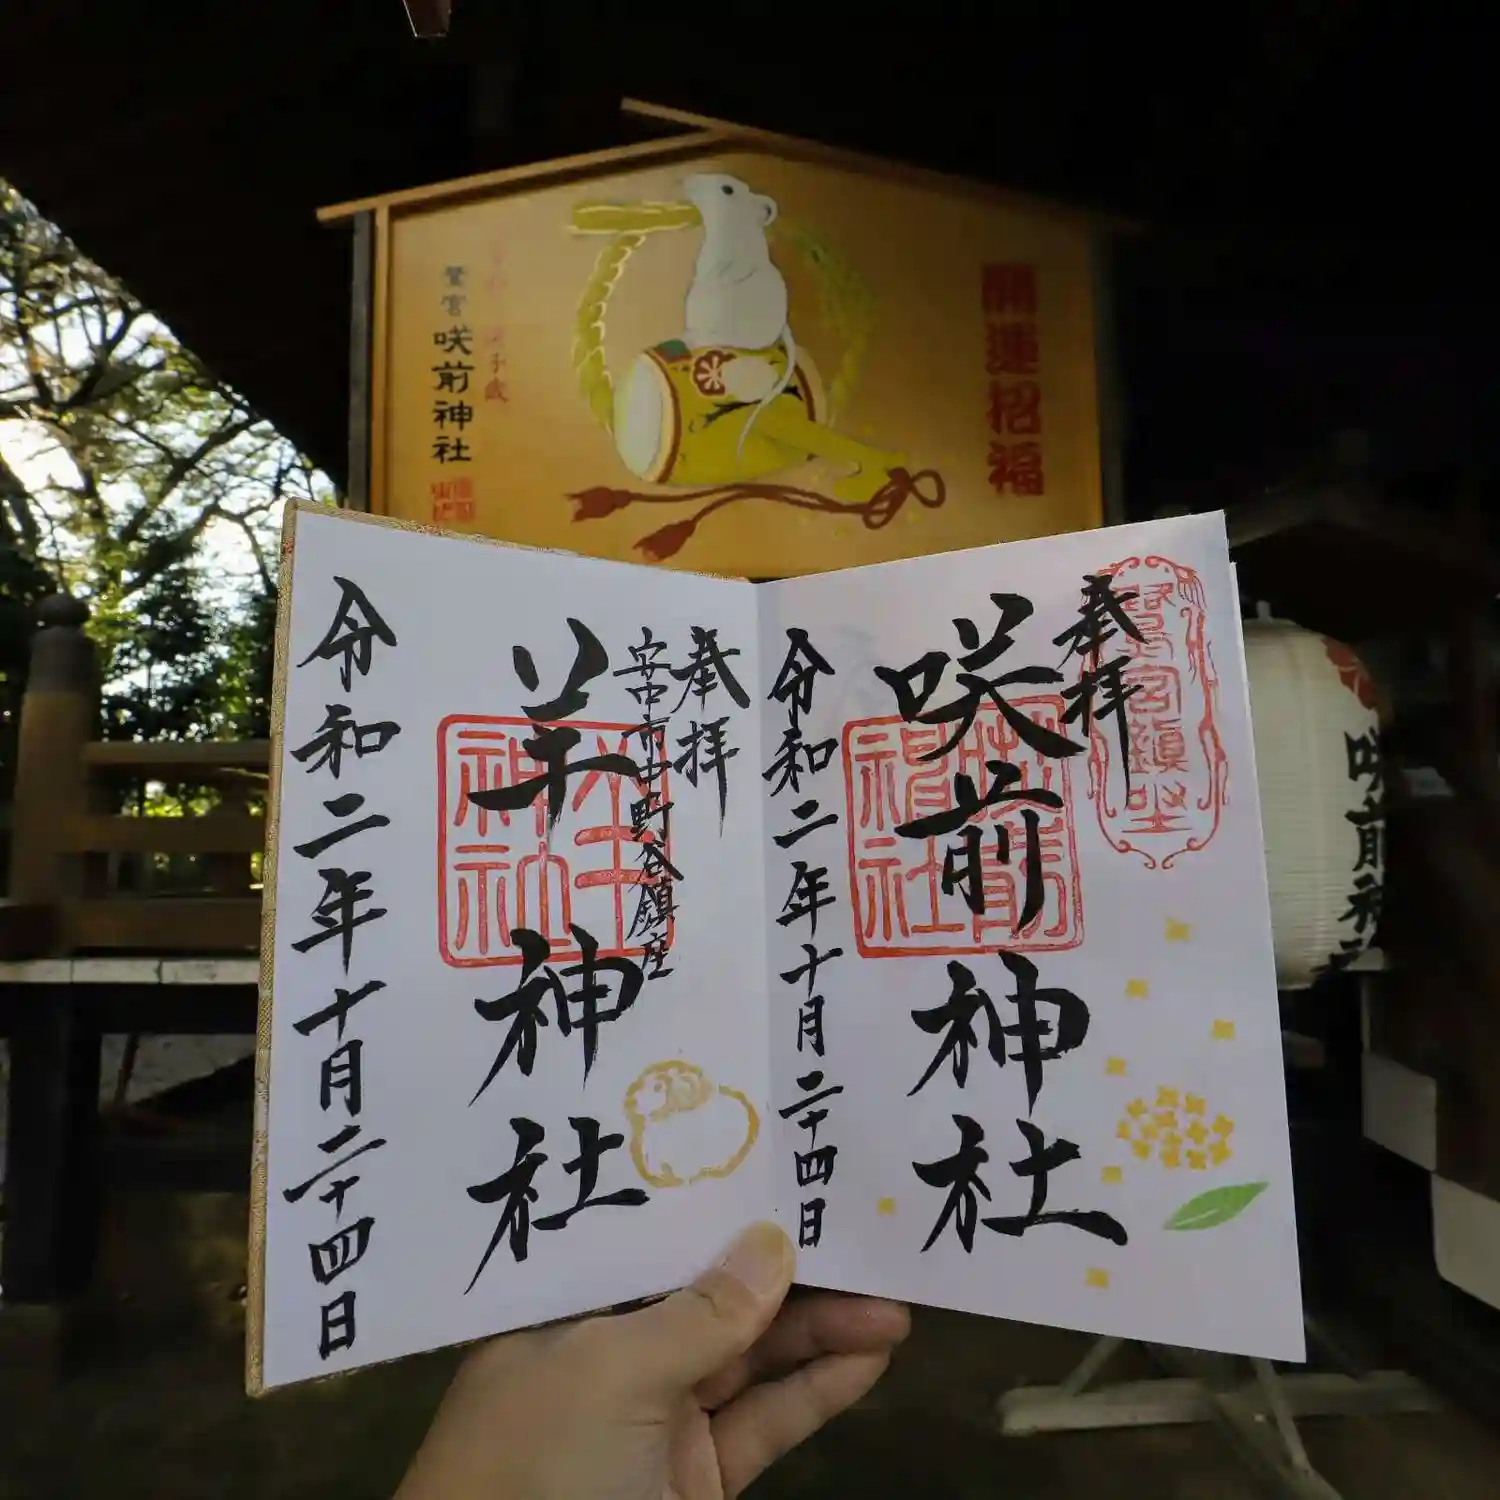 開運招福
鷺宮
咲前神社
奉拝
鷺宮鎮座
咲前神社
令和二年十月二十四日
奉拝
安中市中野谷鎮座
羊神社
令和二年十月二十四日
羊神社
咲前神社
咲前神社